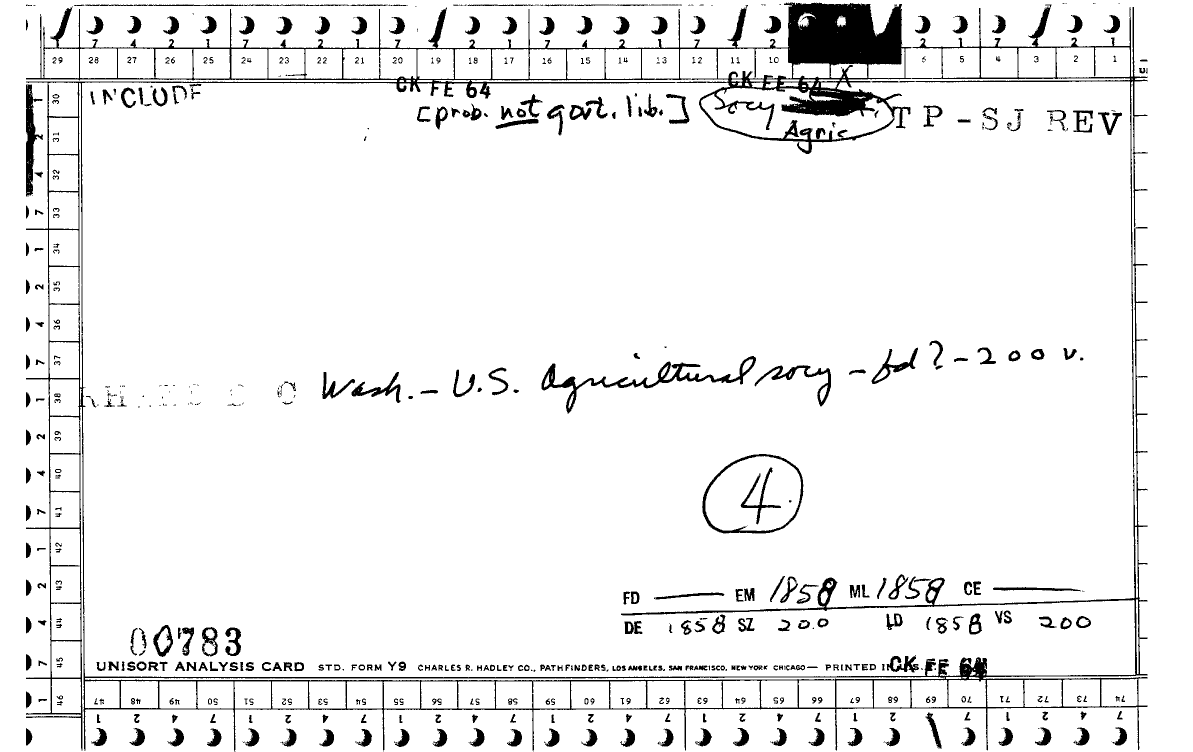 7 4 2 1 7 4 2 1 7 4 2 1 7 4 2 1 2 1 7 4 2 1
29 28 27 26 25 24 23 22 21 20 19 18 17 16 15 14 13 12 11 10 6 5 4 3 2 1
INCLUDE CK FE 64 CK FE 64 X
[prob. not govt. lib.] Socy Agric. TP-SJ REV
30 31 32 33 34 35 36 37 38 39 40 41 42 43 44 45 46
Wash. - U.S. Agricultural socy - fd? - 200 v.
4
FD — EM 1858 ML 1858 CE —
DE 1858 SZ 200 LD 1858 VS 200
00783
UNISORT ANALYSIS CARD STD. FORM Y9 CHARLES R. HADLEY CO., PATHFINDERS, LOS ANGELES, SAN FRANCISCO, NEW YORK CHICAGO — PRINTED IN CK FE 64
47 48 49 50 51 52 53 54 55 56 57 58 59 60 61 62 63 64 65 66 67 68 69 70 71 72 73 74
1 2 4 7 1 2 4 7 1 2 4 7 1 2 4 7 1 2 4 7 1 2 7 1 2 4 7